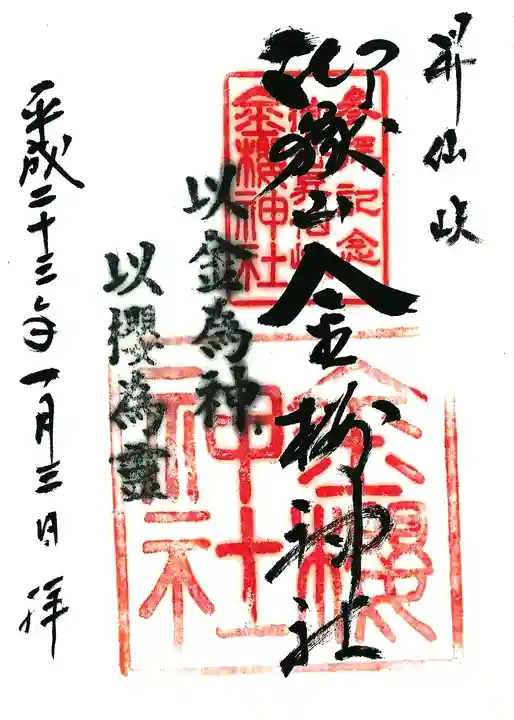 昇仙峡
御嶽山金桜神社
参拝記念
金櫻神社
以金為神
以櫻為霊
金櫻
神社
平成二十三年一月三日拝